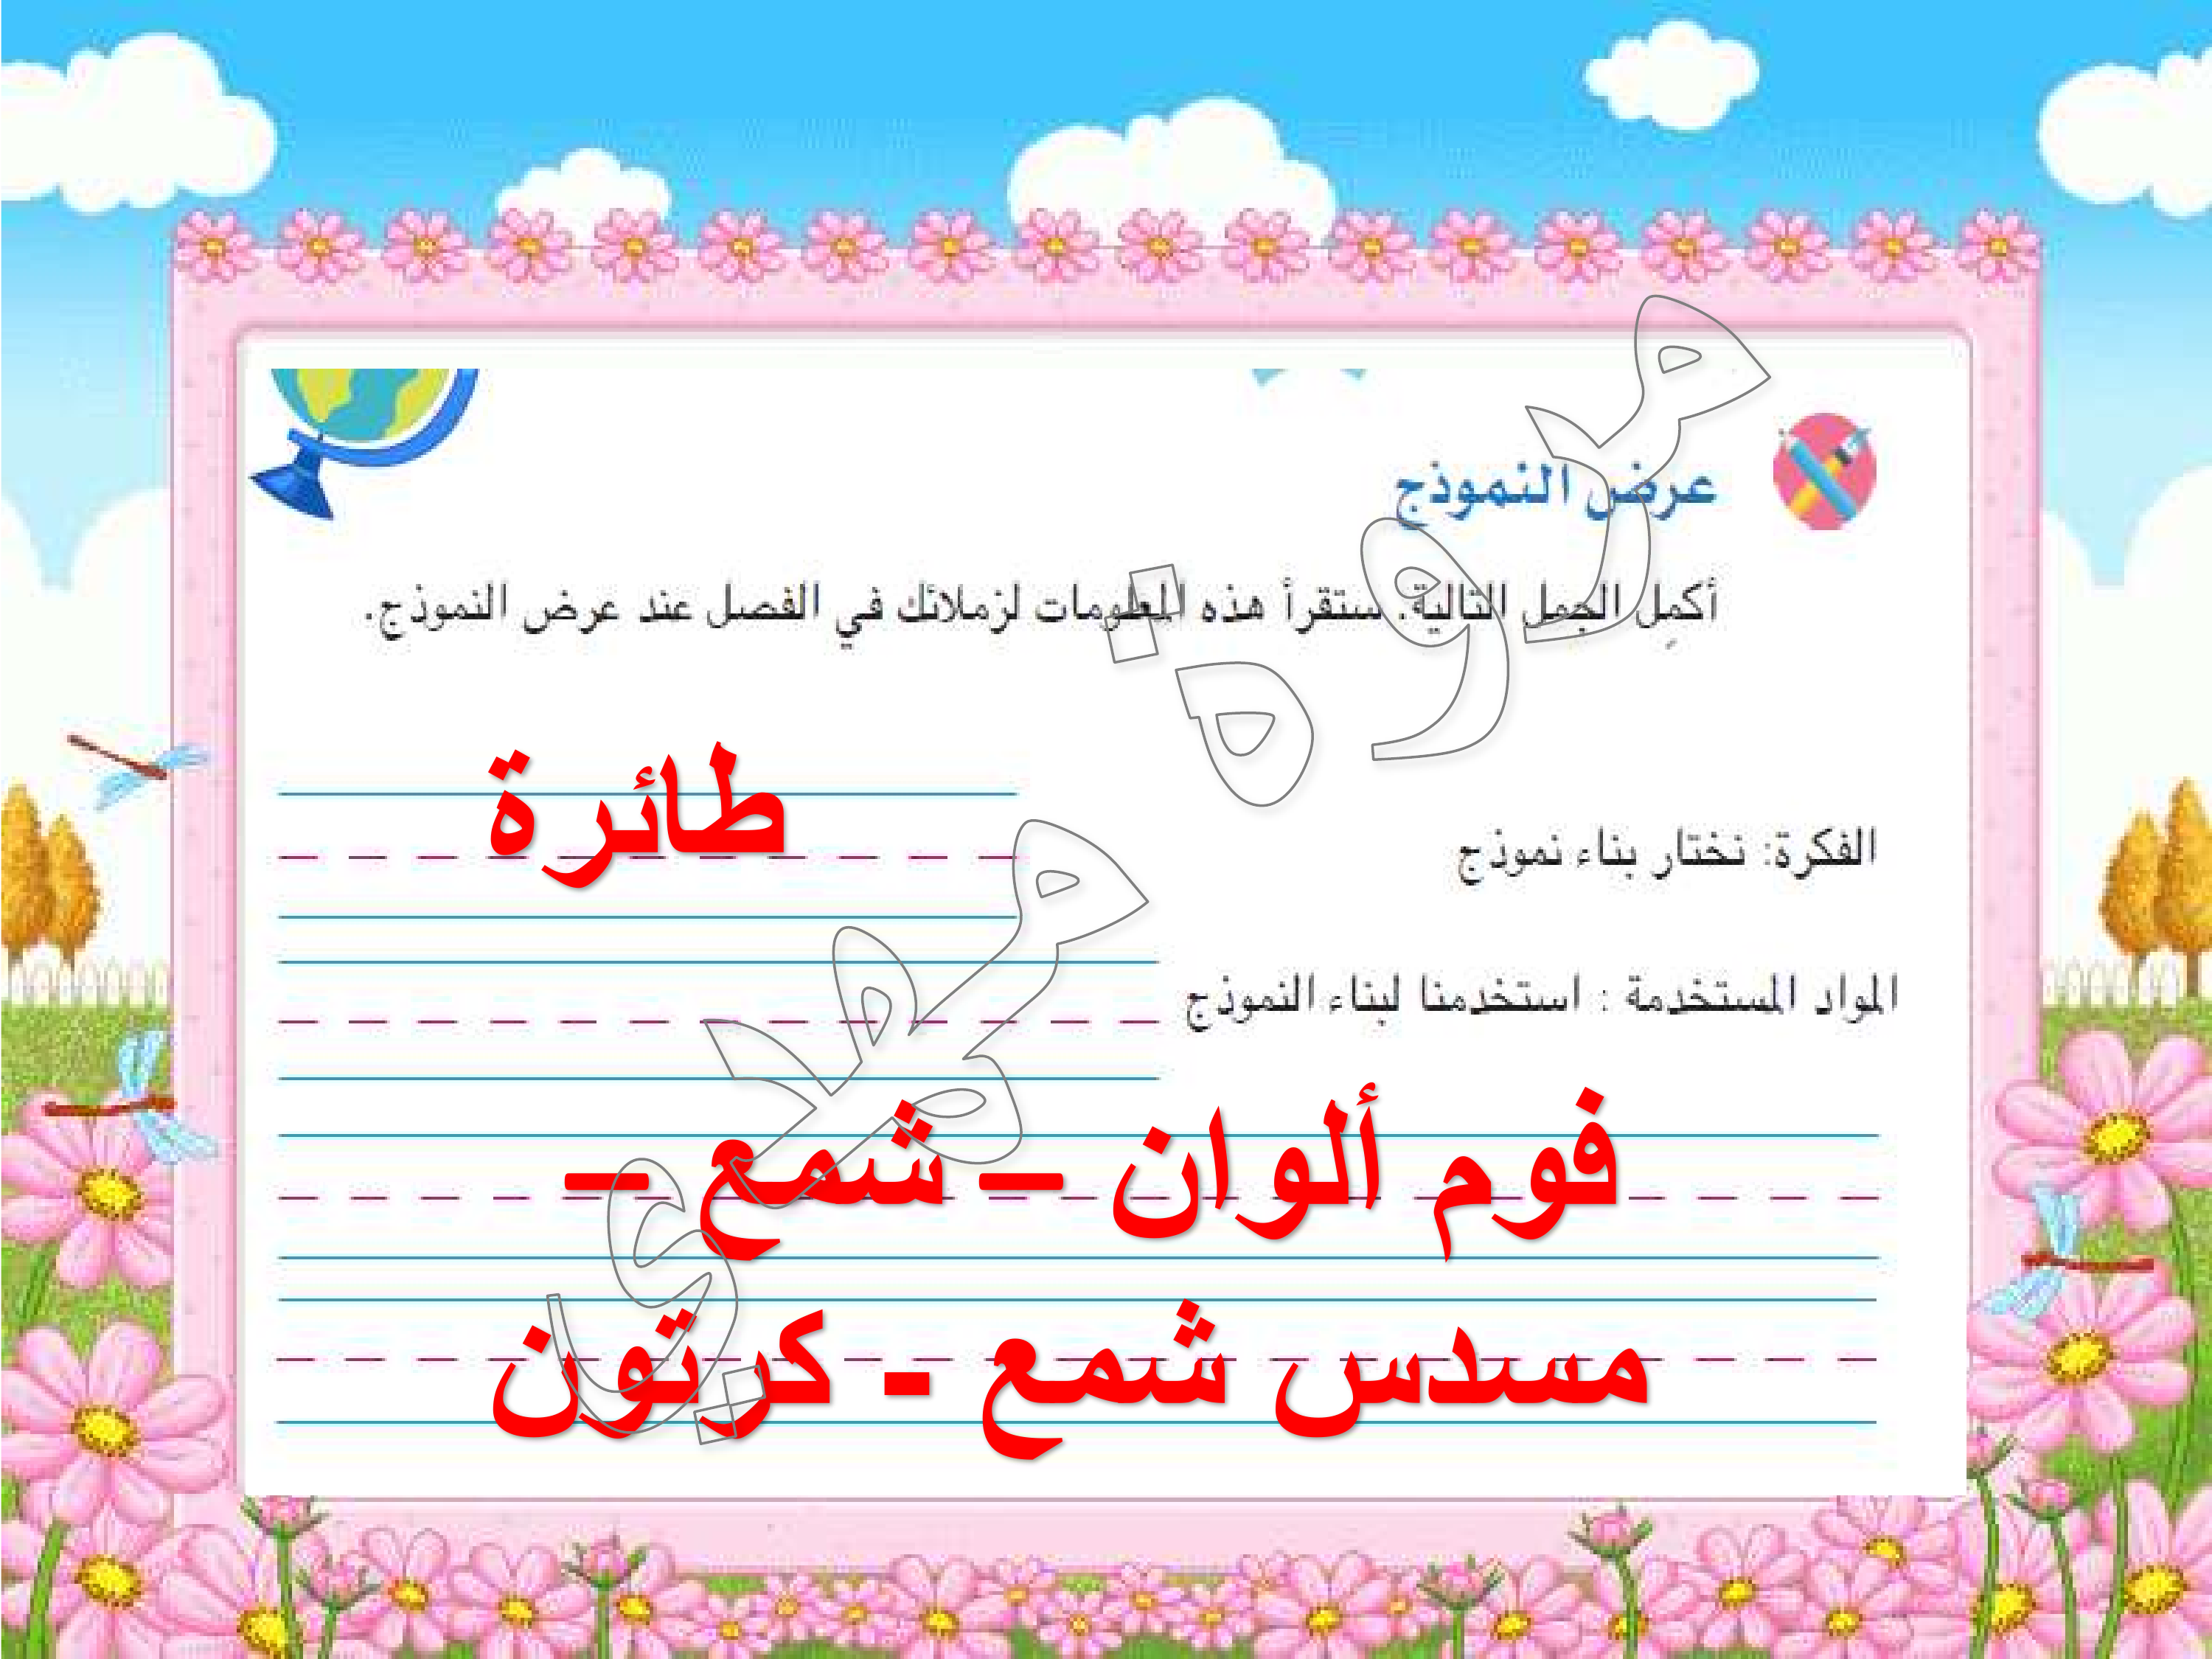 عرض النموذج
أكمِل الجمل التالية. ستقرأ هذه المعلومات لزملائك في الفصل عند عرض النموذج.
طائرة
الفكرة: نختار بناء نموذج
المواد المستخدمة : استخدمنا لبناء النموذج
فوم ألوان – شمع –
مسدس شمع - كرتون
مروة مهدي